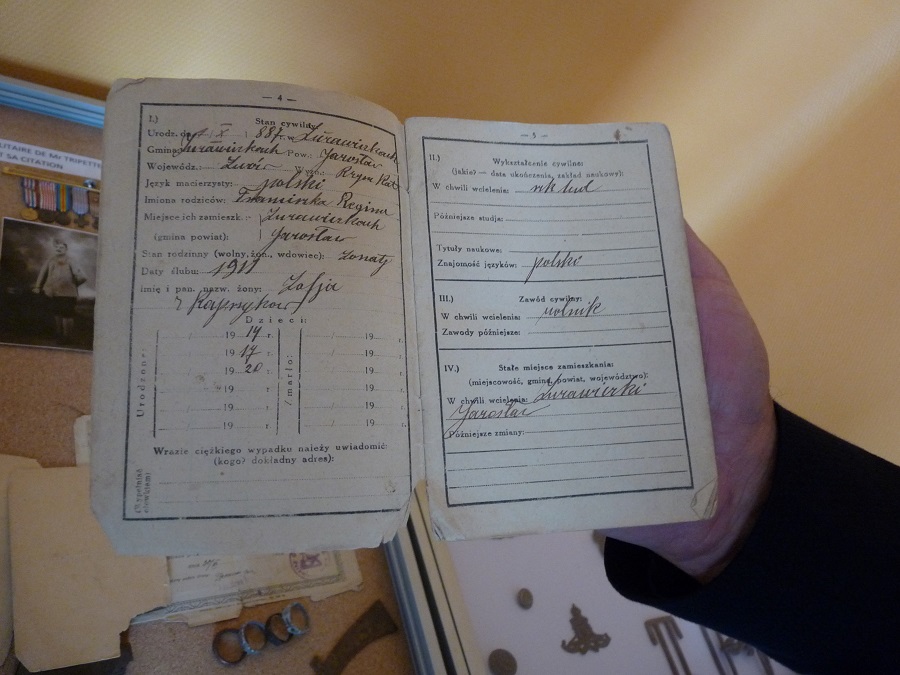 — 4 —
I.) Stan cywilny:
Urodz. dn. X 887 r. w Żurawiczkach
Gmina Żurawiczkach Pow. Jarosław
Wojewódz.: Lwów Wyzn.: Rzym Kat
Język macierzysty: polski
Imiona rodziców: Franciszka Regina
Miejsce ich zamieszk.: Żurawiczkach
(gmina powiat): Jarosław
Stan rodzinny (wolny, żon., wdowiec): żonaty
Daty ślubu: 1911
imię i pan. nazw. żony: Zofja
z
Dzieci:
Urodzone: Zmarło:
19 14 r. 19 r.
19 17 r. 19 r.
19 20 r. 19 r.
19 r. 19 r.
19 r. 19 r.
19 r. 19 r.
W razie ciężkiego wypadku należy uwiadomić:
(kogo? dokładny adres):
(Wypełniać ołówkiem)
— 5 —
II.) Wykształcenie cywilne:
(jakie? — data ukończenia, zakład naukowy):
W chwili wcielenia:
Późniejsze studja:
Tytuły naukowe:
Znajomość języków: polski
III.) Zawód cywilny:
W chwili wcielenia: rolnik
Zawody późniejsze:
IV.) Stałe miejsce zamieszkania:
(miejscowość, gmina, powiat, województwo):
W chwili wcielenia: Żurawiczki
Jarosław
Późniejsze zmiany:
LITAIRE DE Mr TRIPETT
SA CITATION